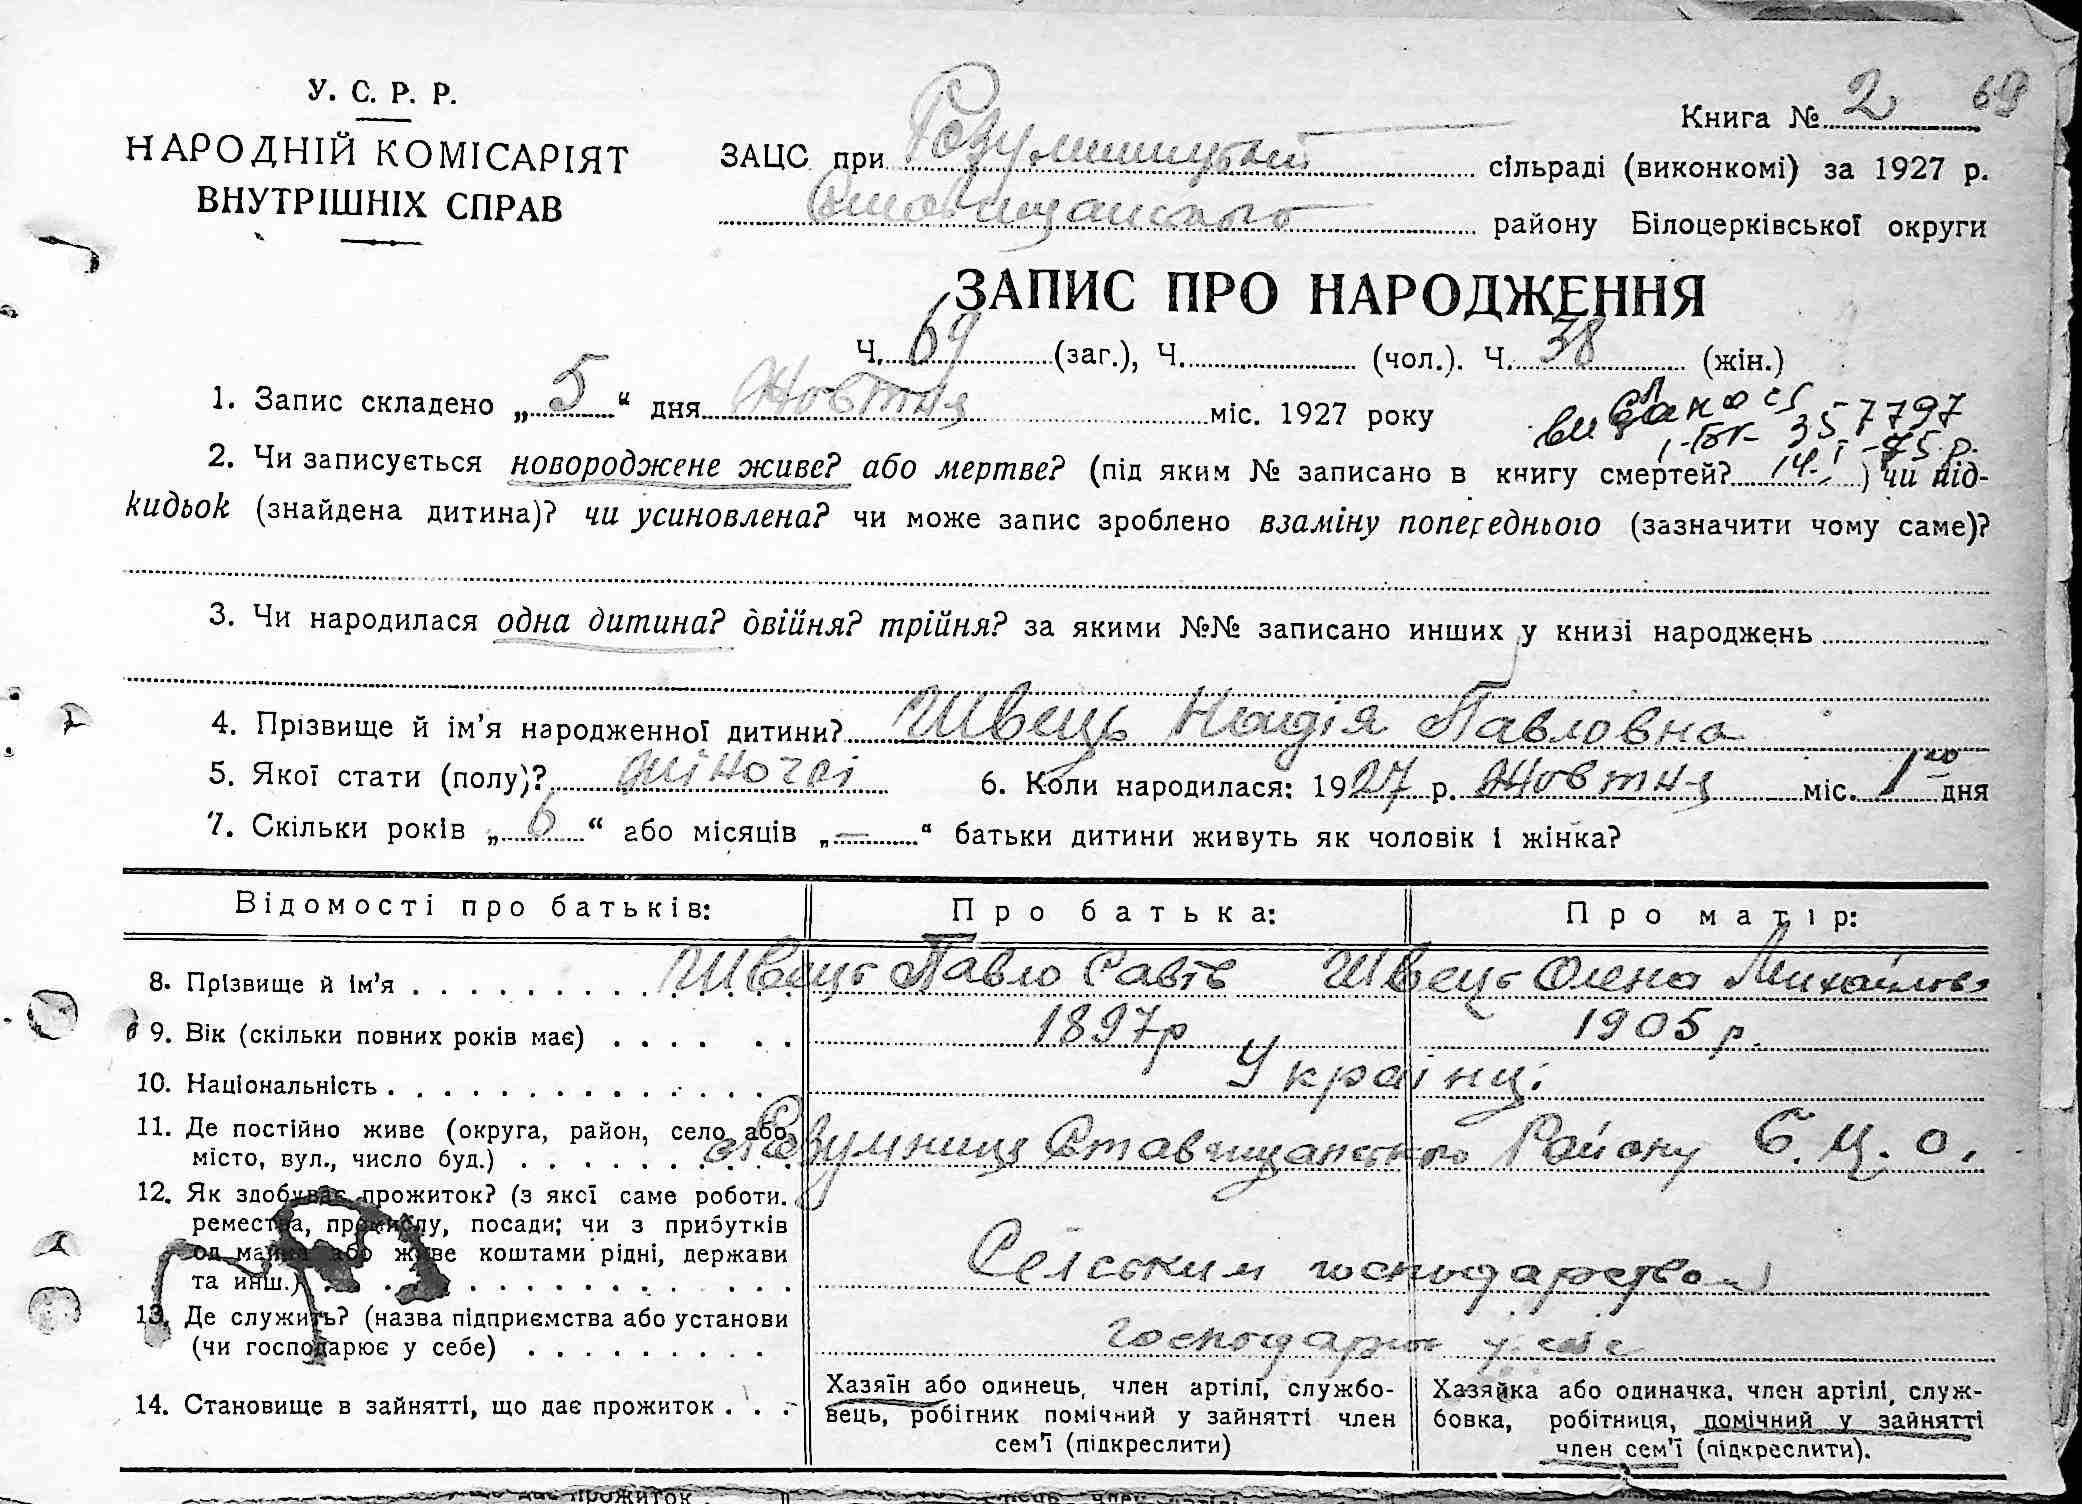 У. С. Р. Р.
НАРОДНІЙ КОМІСАРІЯТ
ВНУТРІШНІХ СПРАВ
Книга № 2 69
ЗАЦС при Розумницькій сільраді (виконкомі) за 1927 р.
Ставищанского району Білоцерківської округи
ЗАПИС ПРО НАРОДЖЕННЯ
Ч. 69 (заг.), Ч. (чол.). Ч. 38 (жін.)
1. Запис складено „ 5 “ дня Жовтня міс. 1927 року
357797
2. Чи записується новороджене живе? або мертве? (під яким № записано в книгу смертей? ) чи під-
кидьок (знайдена дитина)? чи усиновлена? чи може запис зроблено взаміну попереднього (зазначити чому саме)?
3. Чи народилася одна дитина? двійня? трійня? за якими №№ записано инших у книзі народжень
4. Прізвище й ім’я народженної дитини? Швець Надія Павловна
5. Якої стати (полу)? жіночої 6. Коли народилася: 1927 р. Жовтня міс. 1го дня
7. Скільки років „ 6 “ або місяців „ — “ батьки дитини живуть як чоловік і жінка?
Відомості про батьків: Про батька: Про матір:
8. Прізвище й ім’я Швець Павло Савів Швець Олена Михайлов
9. Вік (скільки повних років має) 1897р 1905р.
10. Національність Українці
11. Де постійно живе (округа, район, село або
місто, вул., число буд.) с. Розумниця Ставищанського Району Б. Ц. О.
12. Як здобуває прожиток? (з якої саме роботи.
ремества, промислу, посади; чи з прибутків
од майна або живе коштами рідні, держави
та инш.) Сельським господарством
13. Де служить? (назва підприємства або установи
(чи господарює у себе) господарює у себе
14. Становище в зайнятті, що дає прожиток
Хазяїн або одинець, член артілі, службо-
вець, робітник помічний у зайнятті член
сем’ї (підкреслити)
Хазяйка або одиначка, член артілі, служ-
бовка, робітниця, помічний у зайнятті
член сем’ї (підкреслити).